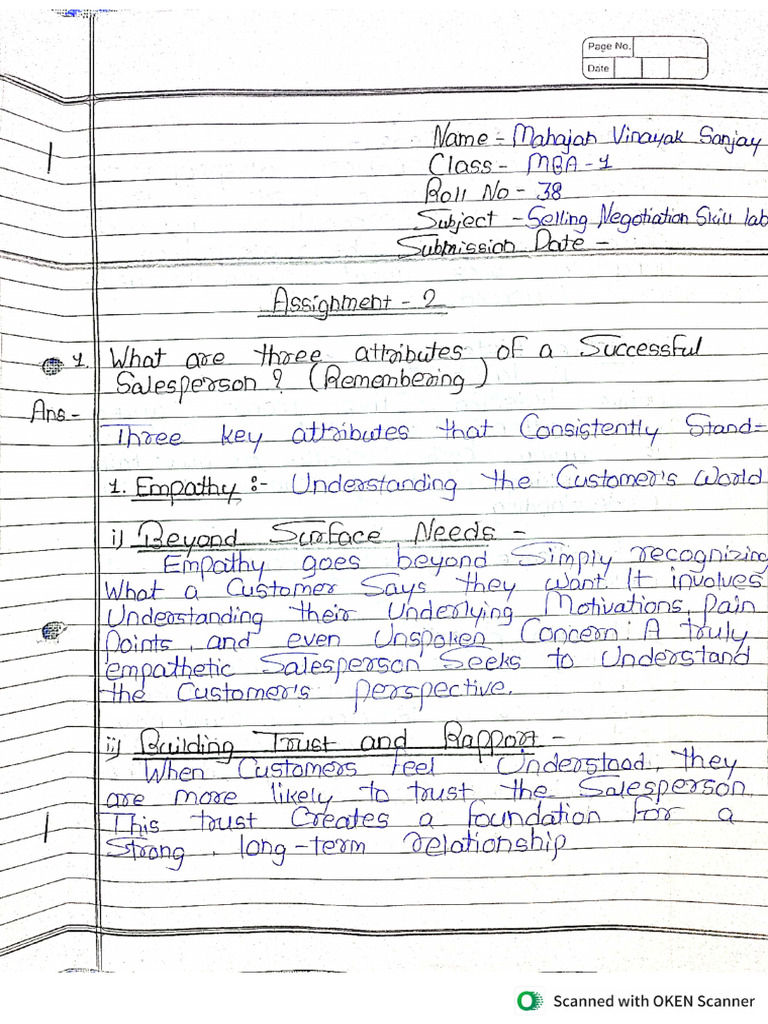 Page No.
Date
Name - Mahajan Vinayak Sanjay
Class - MBA - 1
Roll No - 38
Subject - Selling Negotiation Skill lab
Submission Date -
Assignment - 2
1. What are three attributes of a Successful
Salesperson ? (Remembering)
Ans -
Three key attributes that Consistently Stand=
1. Empathy :- Understanding the Customer's World
i) Beyond Surface Needs -
Empathy goes beyond Simply recognizing
What a Customer Says they want. It involves
Understanding their Underlying Motivations, pain
points, and even Unspoken Concern. A truly
empathetic Salesperson Seeks to Understand
the Customer's perspective.
ii) Building Trust and Rapport -
When Customers feel Understood, they
are more likely to trust the Salesperson
This trust Creates a foundation for a
Strong, long-term relationship
Scanned with OKEN Scanner